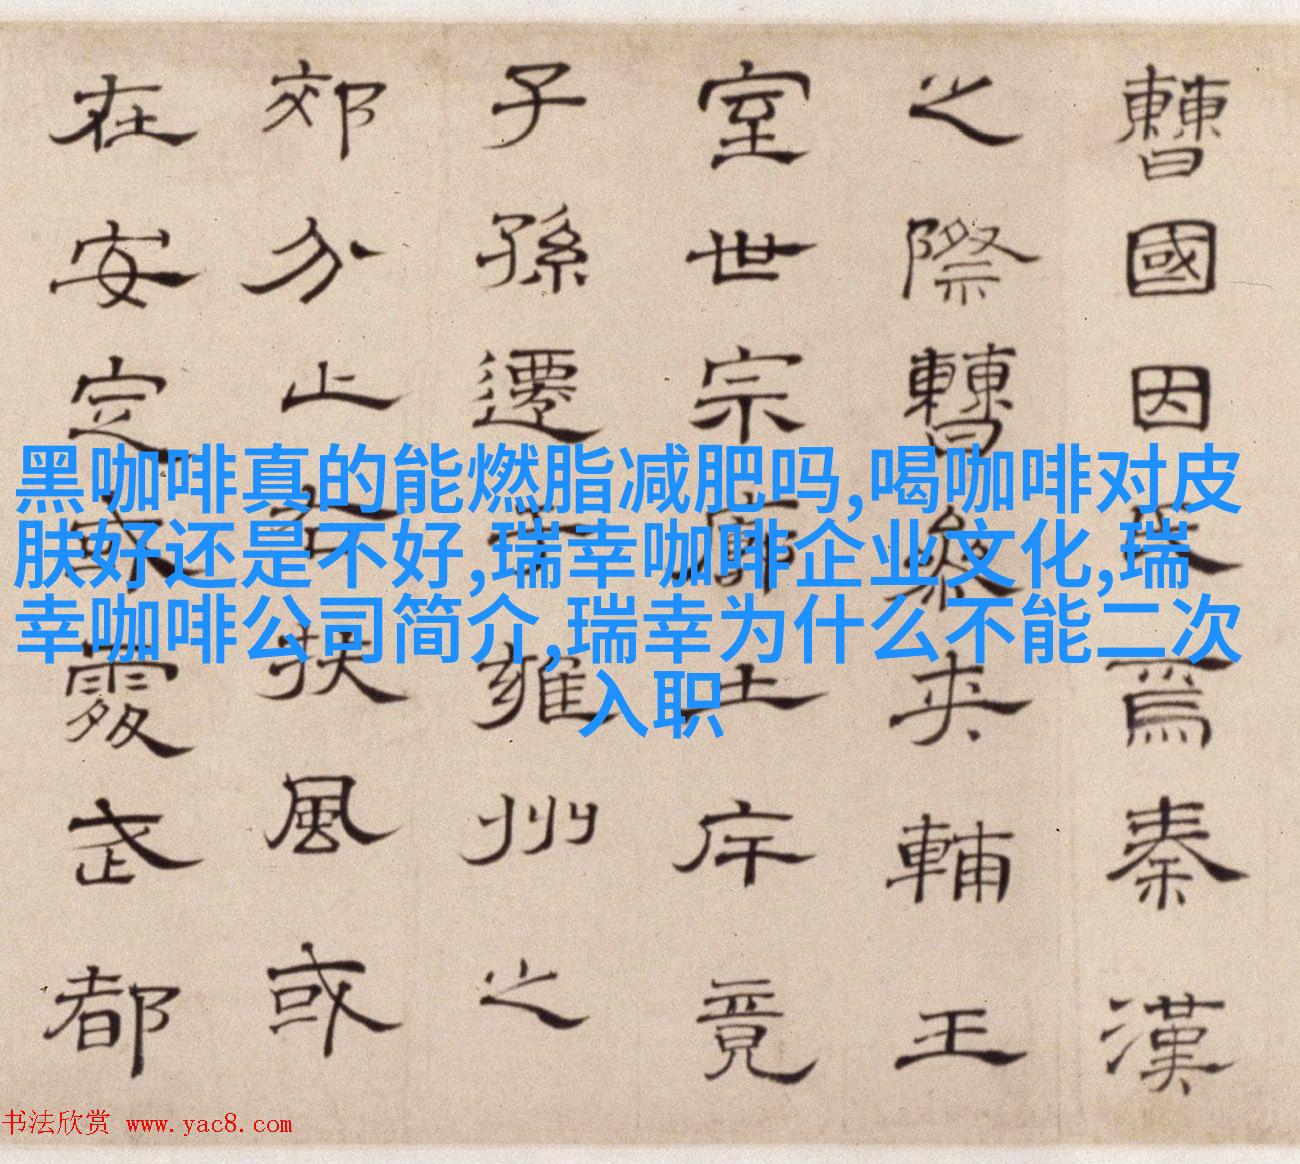 曹國因氏焉秦漢
之際曹參夾輔王
室世宗廓土斥竟
子孫遷于雍州之
郊分止右扶風或
在安定或處武都
黑咖啡真的能燃脂减肥吗,喝咖啡对皮
肤好还是不好,瑞幸咖啡企业文化,瑞
幸咖啡公司简介,瑞幸为什么不能二次
入职
书法欣赏 www.yac8.com